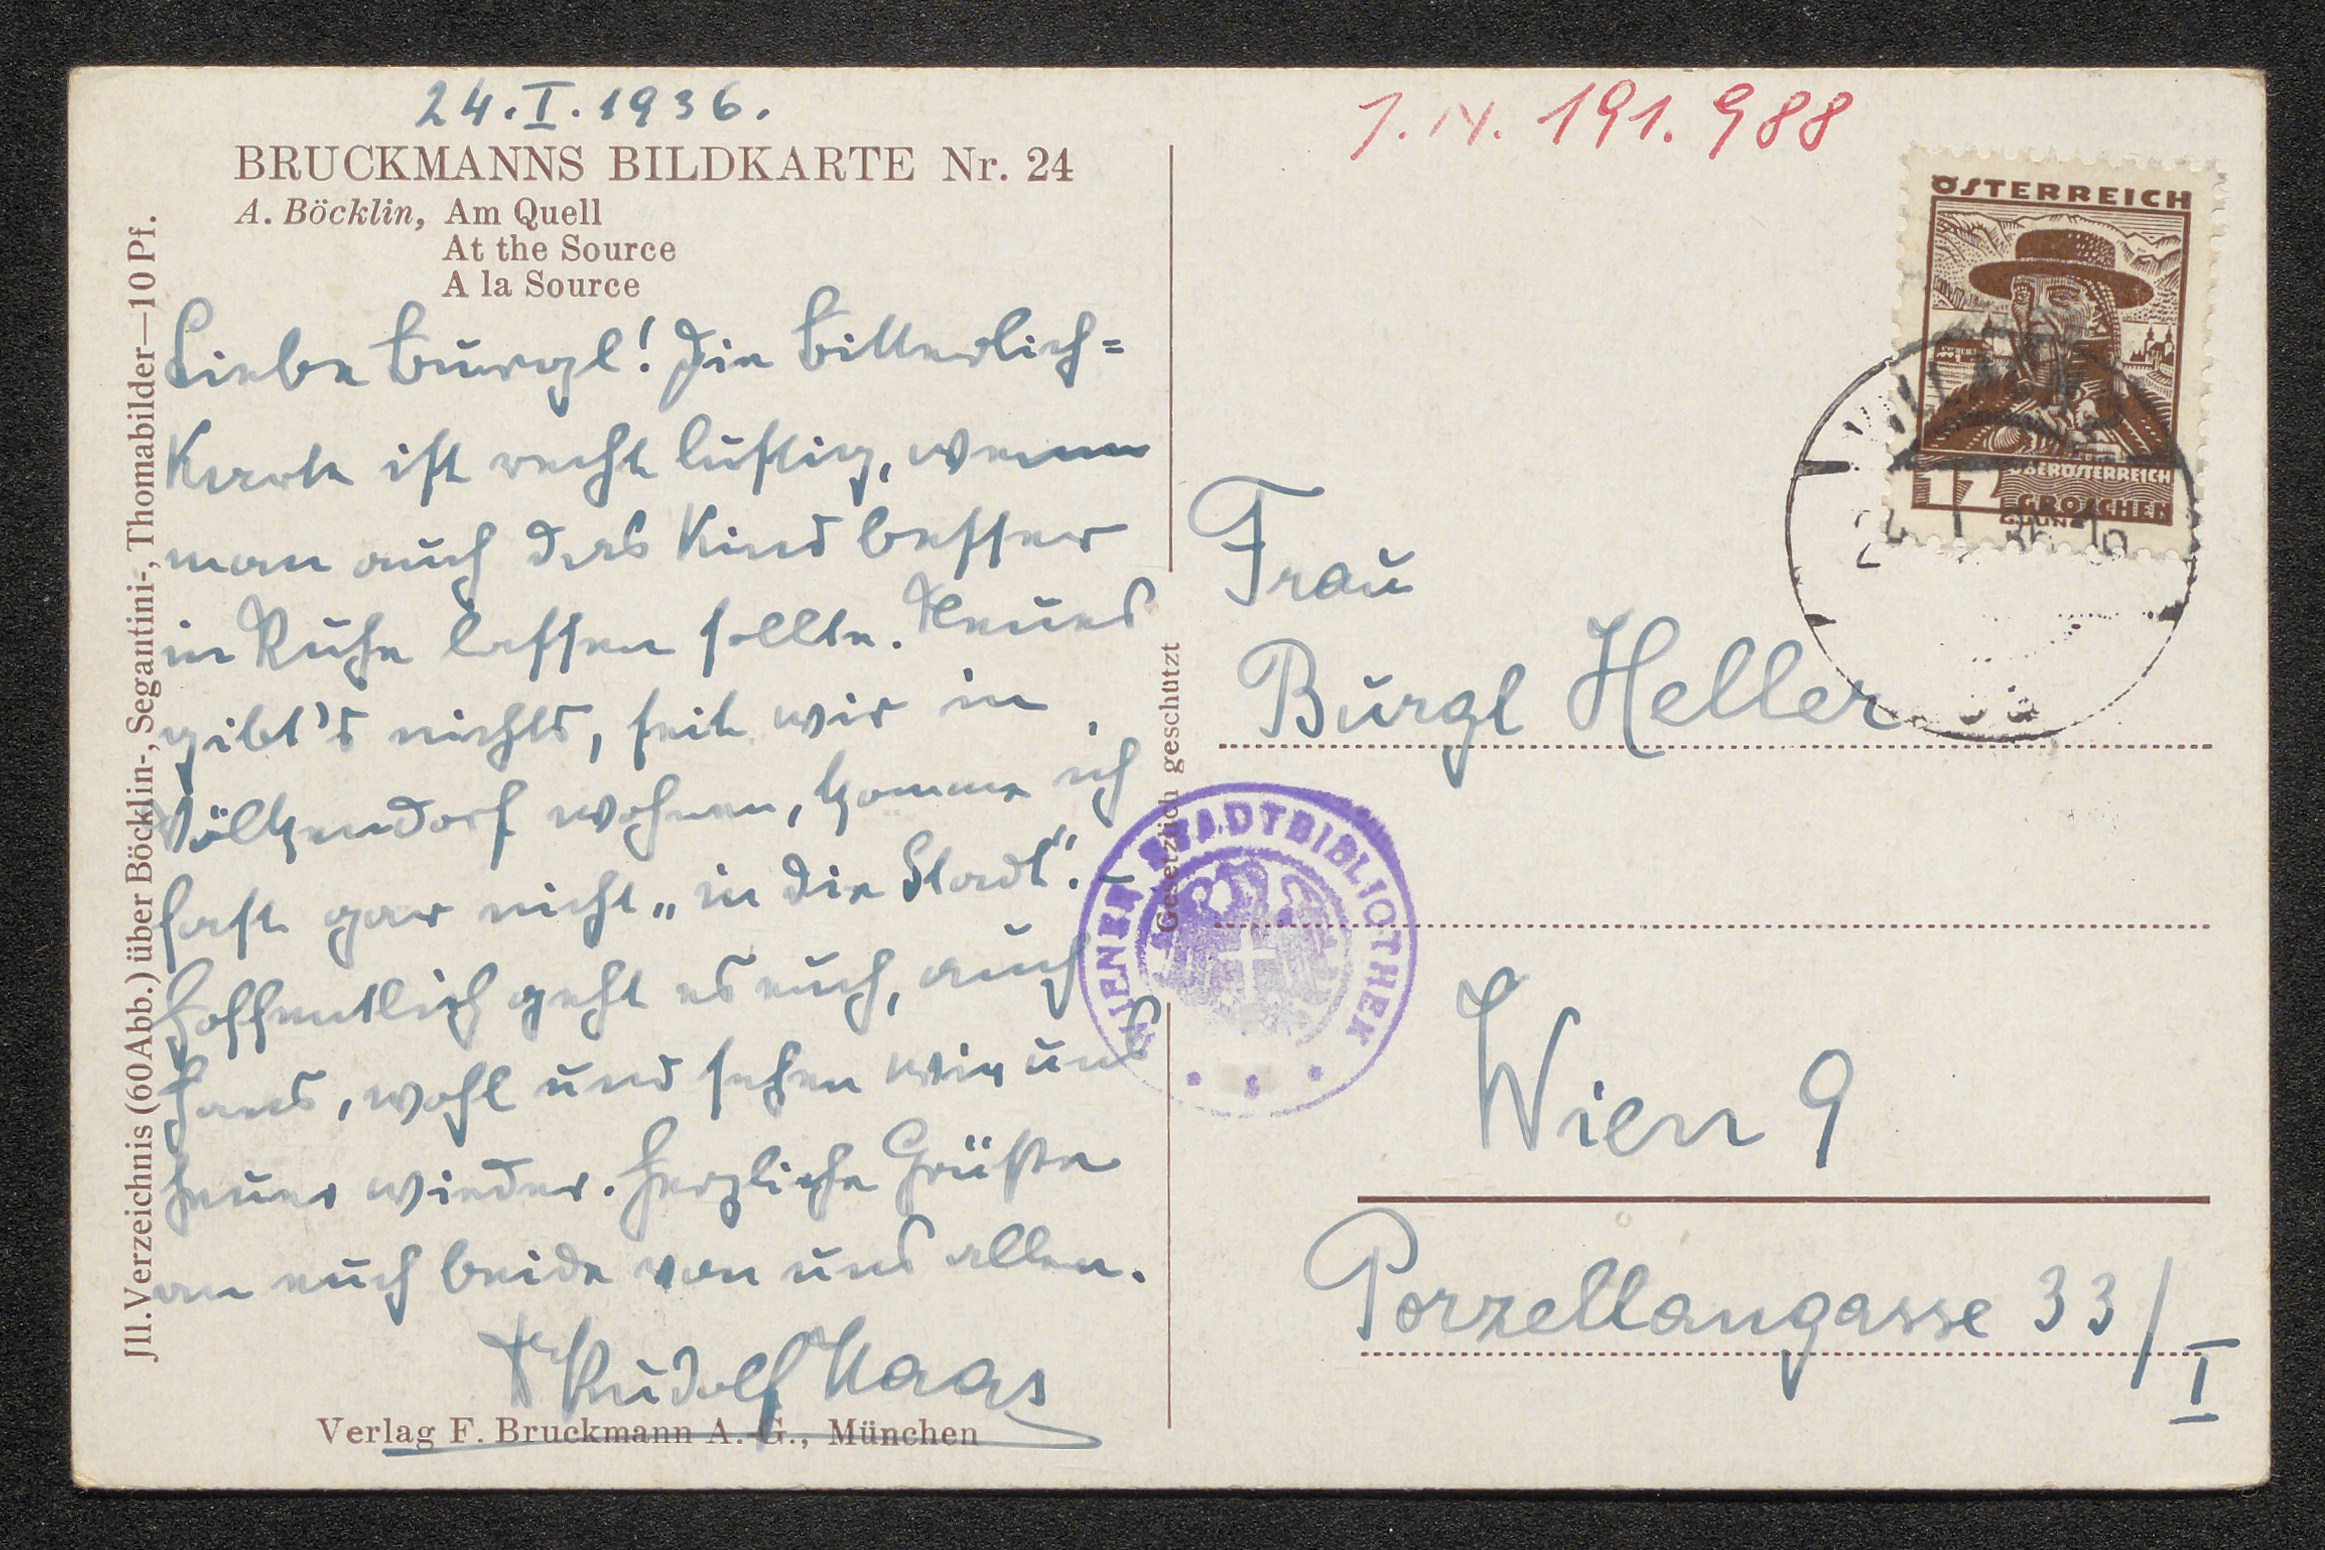 24.I.1936.
BRUCKMANNS BILDKARTE Nr. 24
A. Böcklin, Am Quell
At the Source
A la Source
Liebe Burgl! Die Bitterlich=
Karte ist recht lustig, wenn
man auch das Kind besser
in Ruhe lassen sollte. Neues
gibt's nichts, seit wir in
Völkendorf wohnen, komme ich
fast gar nicht „in die Stadt“. –
Hoffentlich geht es euch, auch
Hans, wohl und sehen wir uns
heuer wieder. Herzliche Grüße
an euch beide von uns allen.
Rudolf Haas
Verlag F. Bruckmann A.-G., München
Jll. Verzeichnis (60 Abb.) über Böcklin-, Segantini-, Thomabilder—10 Pf.
Gesetzlich geschützt
J.N. 191.988
ÖSTERREICH
OBERÖSTERREICH
12 GROSCHEN
Frau
Burgl Heller
WIENER STADTBIBLIOTHEK
Wien 9
Porzellangasse 33/I